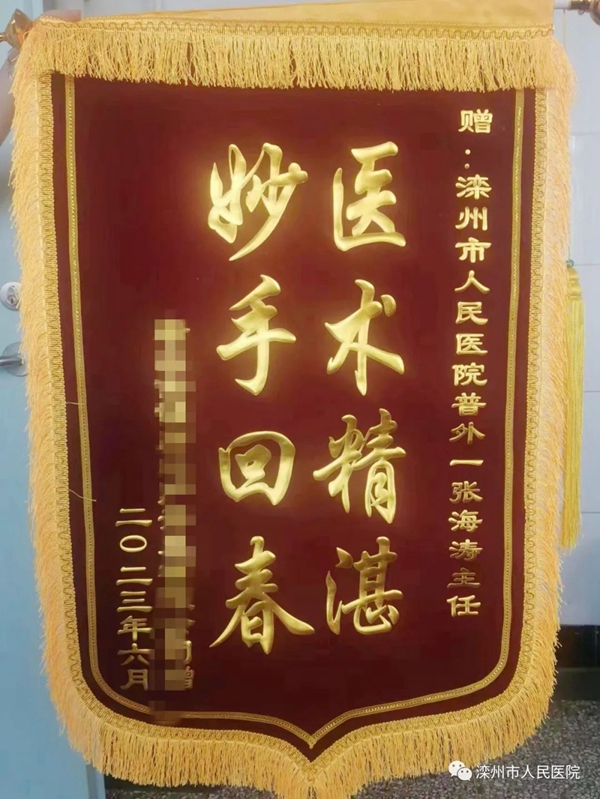 赠：滦州市人民医院普外一张海涛主任
医术精湛
妙手回春
赠
二〇二三年六月
滦州市人民医院